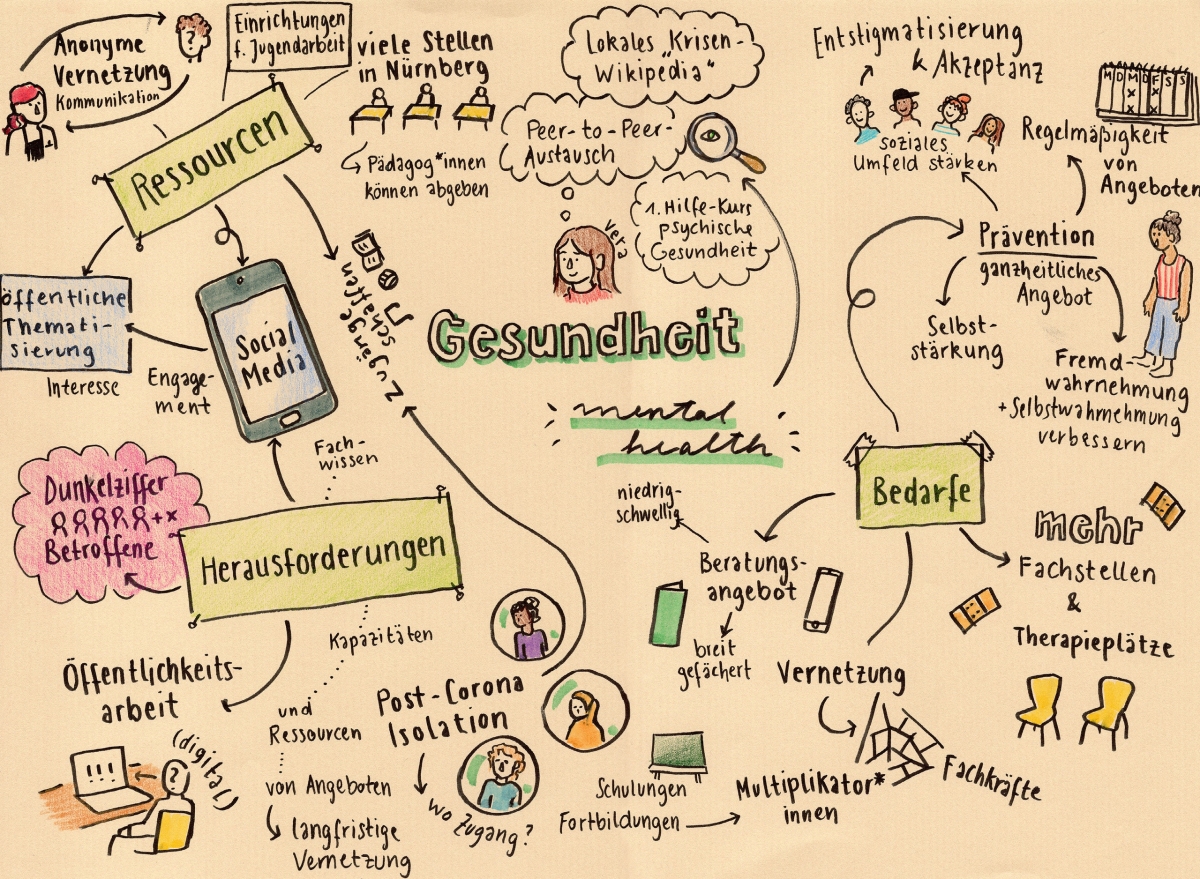 Anonyme
Vernetzung
Kommunikation
Einrichtungen
f. Jugendarbeit
viele Stellen
in Nürnberg
Pädagog*innen
können abgeben
Ressourcen
öffentliche
Themati-
sierung
Interesse
Engage-
ment
Social
Media
Zugänge
schaffen
Lokales "Krisen-
Wikipedia"
Peer-to-Peer-
Austausch
1. Hilfe-Kurs
psychische
Gesundheit
vera
Gesundheit
mental
health
Entstigmatisierung
& Akzeptanz
soziales
Umfeld stärken
M D M D F S S
x x
x x
Regelmäßigkeit
von
Angeboten
Prävention
ganzheitliches
Angebot
Selbst-
stärkung
Fremd-
wahrnehmung
+Selbstwahrnehmung
verbessern
Bedarfe
mehr
Fachstellen
&
Therapieplätze
niedrig-
schwellig
Beratungs-
angebot
breit
gefächert
Vernetzung
Multiplikator*
innen
Fachkräfte
Schulungen
Fortbildungen
Fach-
wissen
Dunkelziffer
++x
Betroffene
Herausforderungen
Kapazitäten
und
Ressourcen
von Angeboten
langfristige
Vernetzung
Öffentlichkeits-
arbeit
(digital)
!!!
?
Post-Corona
Isolation
wo Zugang?